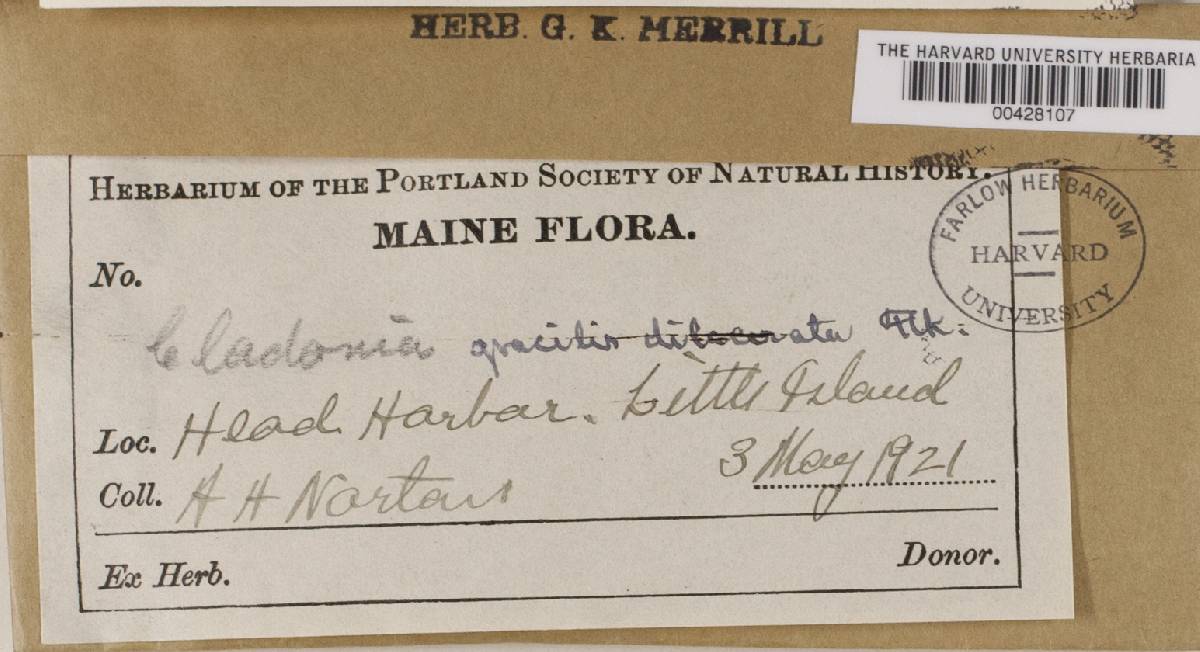 HERB. G. K. MERRILL
THE HARVARD UNIVERSITY HERBARIA
00428107
HERBARIUM OF THE PORTLAND SOCIETY OF NATURAL HISTORY.
MAINE FLORA.
FARLOW HERBARIUM
HARVARD
UNIVERSITY
No.
Cladonia gracilis dilacerata Flk.
Loc. Head Harbar. Little Island
3 May 1921
Coll. A H Norton
Ex Herb. Donor.